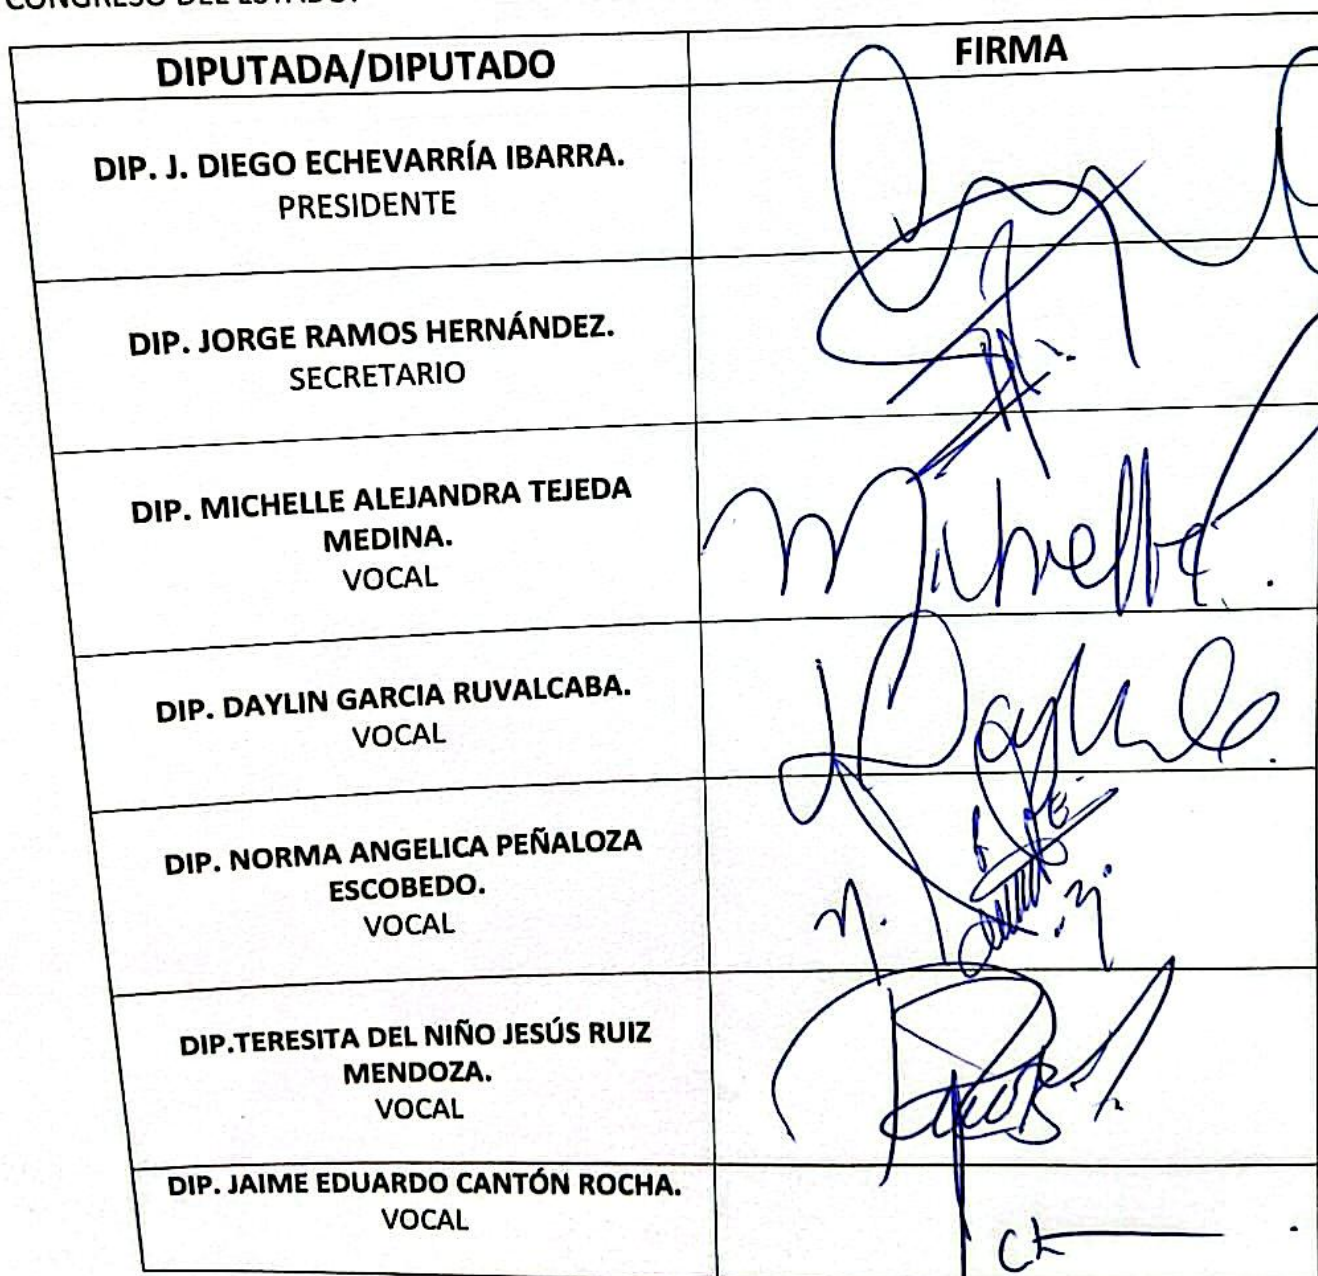 CONGRESO DEL ESTADO.
DIPUTADA/DIPUTADO
FIRMA
DIP. J. DIEGO ECHEVARRÍA IBARRA.
PRESIDENTE
DIP. JORGE RAMOS HERNÁNDEZ.
SECRETARIO
DIP. MICHELLE ALEJANDRA TEJEDA
MEDINA.
VOCAL
Michelle
DIP. DAYLIN GARCIA RUVALCABA.
VOCAL
DIP. NORMA ANGELICA PEÑALOZA
ESCOBEDO.
VOCAL
DIP.TERESITA DEL NIÑO JESÚS RUIZ
MENDOZA.
VOCAL
DIP. JAIME EDUARDO CANTÓN ROCHA.
VOCAL